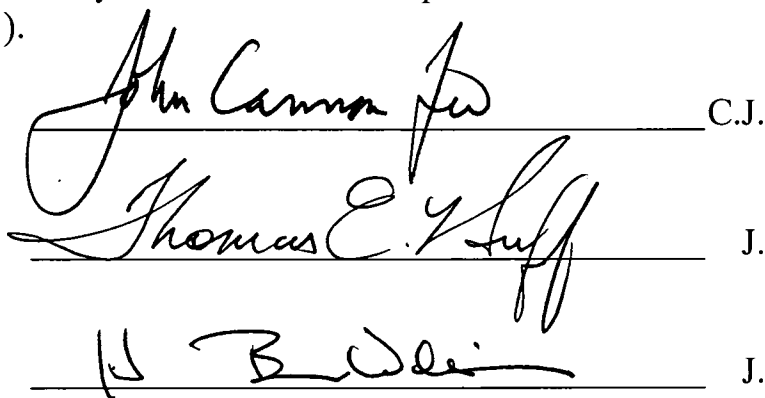 ).
John Cannon Few C.J.
Thomas E. Huff J.
H Bruce J.